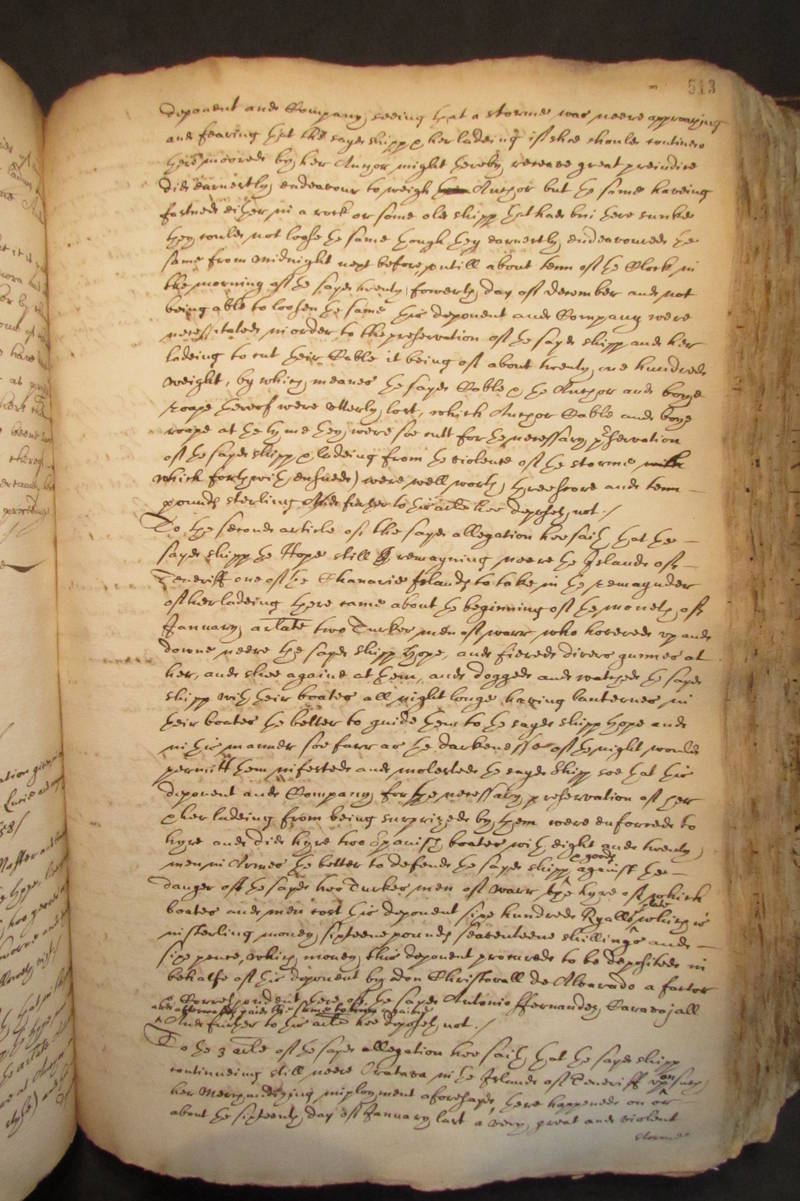 513
deponent and Company seeing that a storme was neere approaching
and fearing that the sayd shipp & her ladeing if shee should continue
there moored by her Anchor might thereby receave great prejudice
did earnestly endeavour to weigh the Anchor but the same haveing
fastned either in a rock or some old shipp that had bin there sunke
they could not loose the same though they earnestly endeavoured the
same from midnight next before untill about tenn of the Clock in
the morning of the sayd twenty fowerth day of december and not
being able to loosen the same this deponent and Company were
necessitated in order to the preservation of the sayd shipp and her
ladeing to cut their Cable it being of about twenty one hundred
weight, by which meanes the sayd Cable & the Anchor and boye
roape thereof were utterly lost, which Anchor Cable and boye
roape at the tyme they were soe cutt for the necessary preservation
of the sayd shipp & ladeing from the violence of the storme
which forthwith ensued) were well worth threescore and tenn
pounds sterling And further to this arle hee deposeth not./
To the second article of the sayd allegation hee saith that the
sayd shipp the Hope still remayning neere the Island of
Teneriff one of the Chanarie Islands to take in the remaynder
of her ladeing there came about the beginning of the moneth of
January arlate two Turkes men of warr who hovered up and
downe neere the sayd shipp Hope, and fiered divers gunnes at
her, and shee againe at them, and dogged and watched the sayd
shipp with their boates all night longe having lanternes in
their boates the better to guide them to the sayd shipp Hope and
in this manner soe farr as the darkenesse of the night would
permitt them infested and molested the sayd shipp soe that this
deponent and Company for the necessary preservation of her
& her ladeing from being surprized by them were enforced to
hyre and did hyre two Spanish boates with eight and twenty
men in Armes the better to defend the sayd shipp & goods against the
danger of the sayd two Turkes men of warr the hyre of which
boates and men cost this deponent sixe hundred Ryalls which is
in sterling money sixteene pounds seaventeene shillings and
sixe pence, which money this deponent procured to be deposited in
behalfe of this deponent by don Christovall de Alvarado a factor
or Correspondent there of the sayd Antonio ffernandez Caravajall
And further to this arle hee deposeth not./
To the 3 arle of the sayd allegation hee saith that the sayd shipp
continueing still neere Oratava in the Island of Teneriff upon such
her Merchandizing imployment aforesayd there happened on or
about the sixteenth day of January last a very great and violent
storme